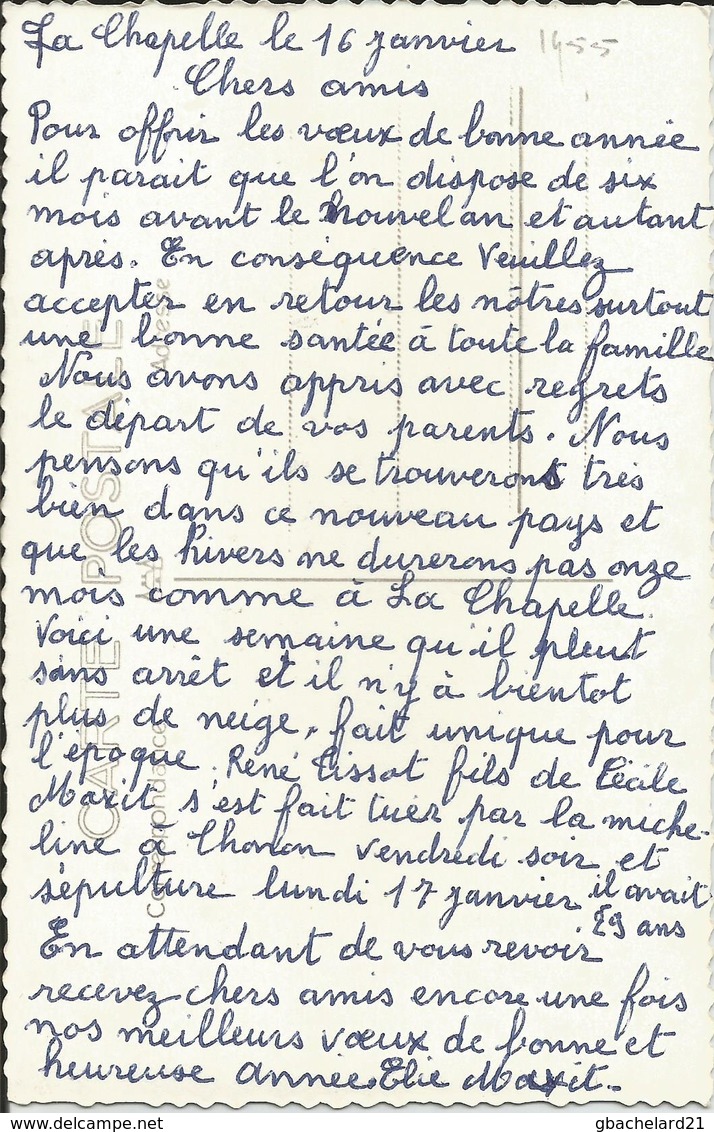 La Chapelle le 16 janvier 1955
Chers amis
Pour offrir les vœux de bonne année
il parait que l'on dispose de six
mois avant le nouvel an et autant
après. En conséquence Veuillez
accepter en retour les nôtres surtout
une bonne santée à toute la famille
Nous avons appris avec regrets
le départ de vos parents. Nous
pensons qu'ils se trouverons très
bien dans ce nouveau pays et
que les hivers ne durerons pas onze
mois comme à La Chapelle.
Voici une semaine qu'il pleut
sans arrêt et il n'y à bientot
plus de neige, fait unique pour
l'époque. René Tissot fils de Cécile
Maxit s'est fait tuer par la miche-
line à Thonon vendredi soir et
sépulture lundi 17 janvier il avait
29 ans
En attendant de vous revoir
recevez chers amis encore une fois
nos meilleurs vœux de bonne et
heureuse année. Elie Maxit.
CARTE POSTALE
Correspondance
Adresse
gbachelard21